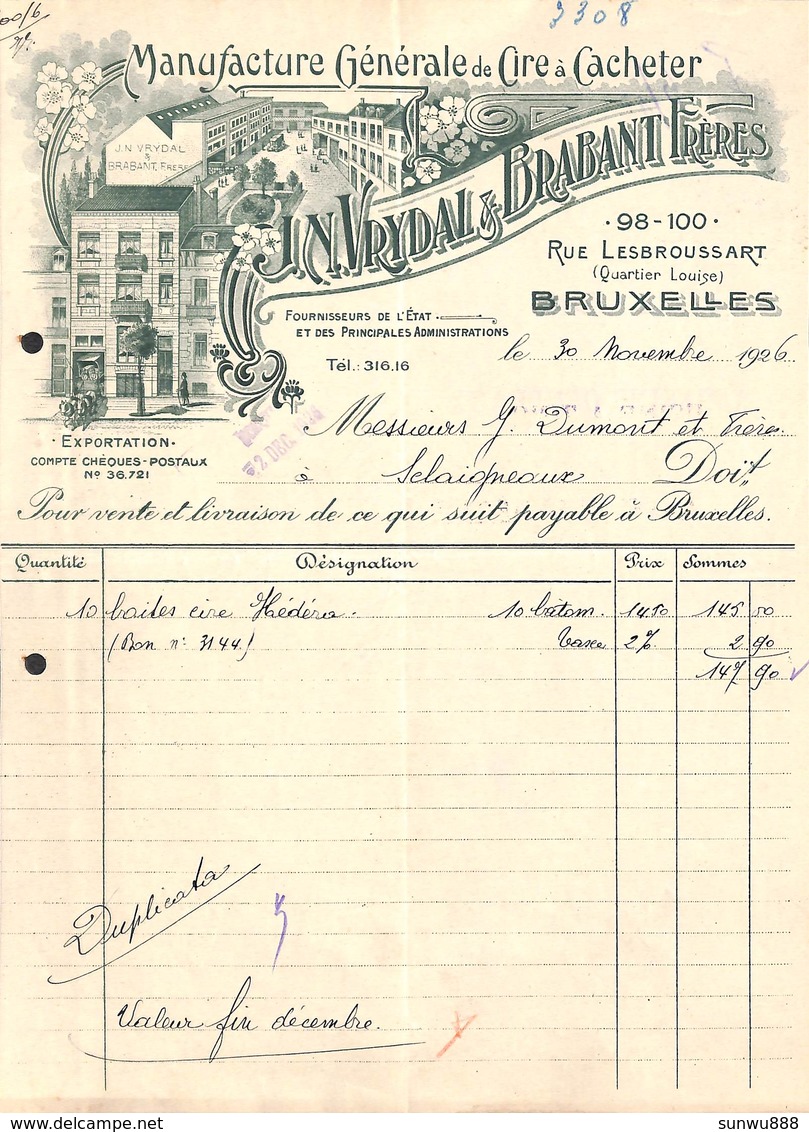 3308
Manufacture Générale de Cire à Cacheter
J.N. VRYDAL
&
BRABANT, FRÈRES
J.N. VRYDAL & BRABANT FRÈRES
·98-100·
RUE LESBROUSSART
(Quartier Louise)
BRUXELLES
FOURNISSEURS DE L'ÉTAT
ET DES PRINCIPALES ADMINISTRATIONS
Tél.: 316.16
le 30 Novembre 1926
2 DEC
· EXPORTATION ·
COMPTE CHÈQUES-POSTAUX
Nº 36.721
Messieurs G. Dumont et Frères
à Sclaigneaux Doit
Pour vente et livraison de ce qui suit payable à Bruxelles.
Quantité Désignation Prix Sommes
10 boites cire Hédéra. 10 batons. 14 50 145 00
(Bon nº 3144) taxe 2% 2 90
147 90
Duplicata
Valeur fin décembre.
sunwu888